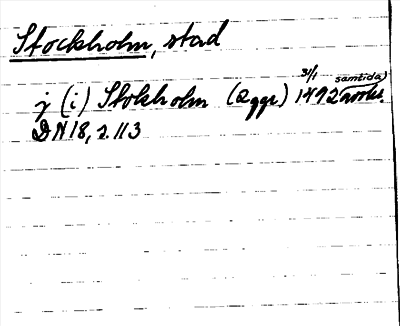 Stockholm, stad
j (i) Stokholm (2 ggr) 31/1 1492 samtida) avskr.
DN 18, s. 113